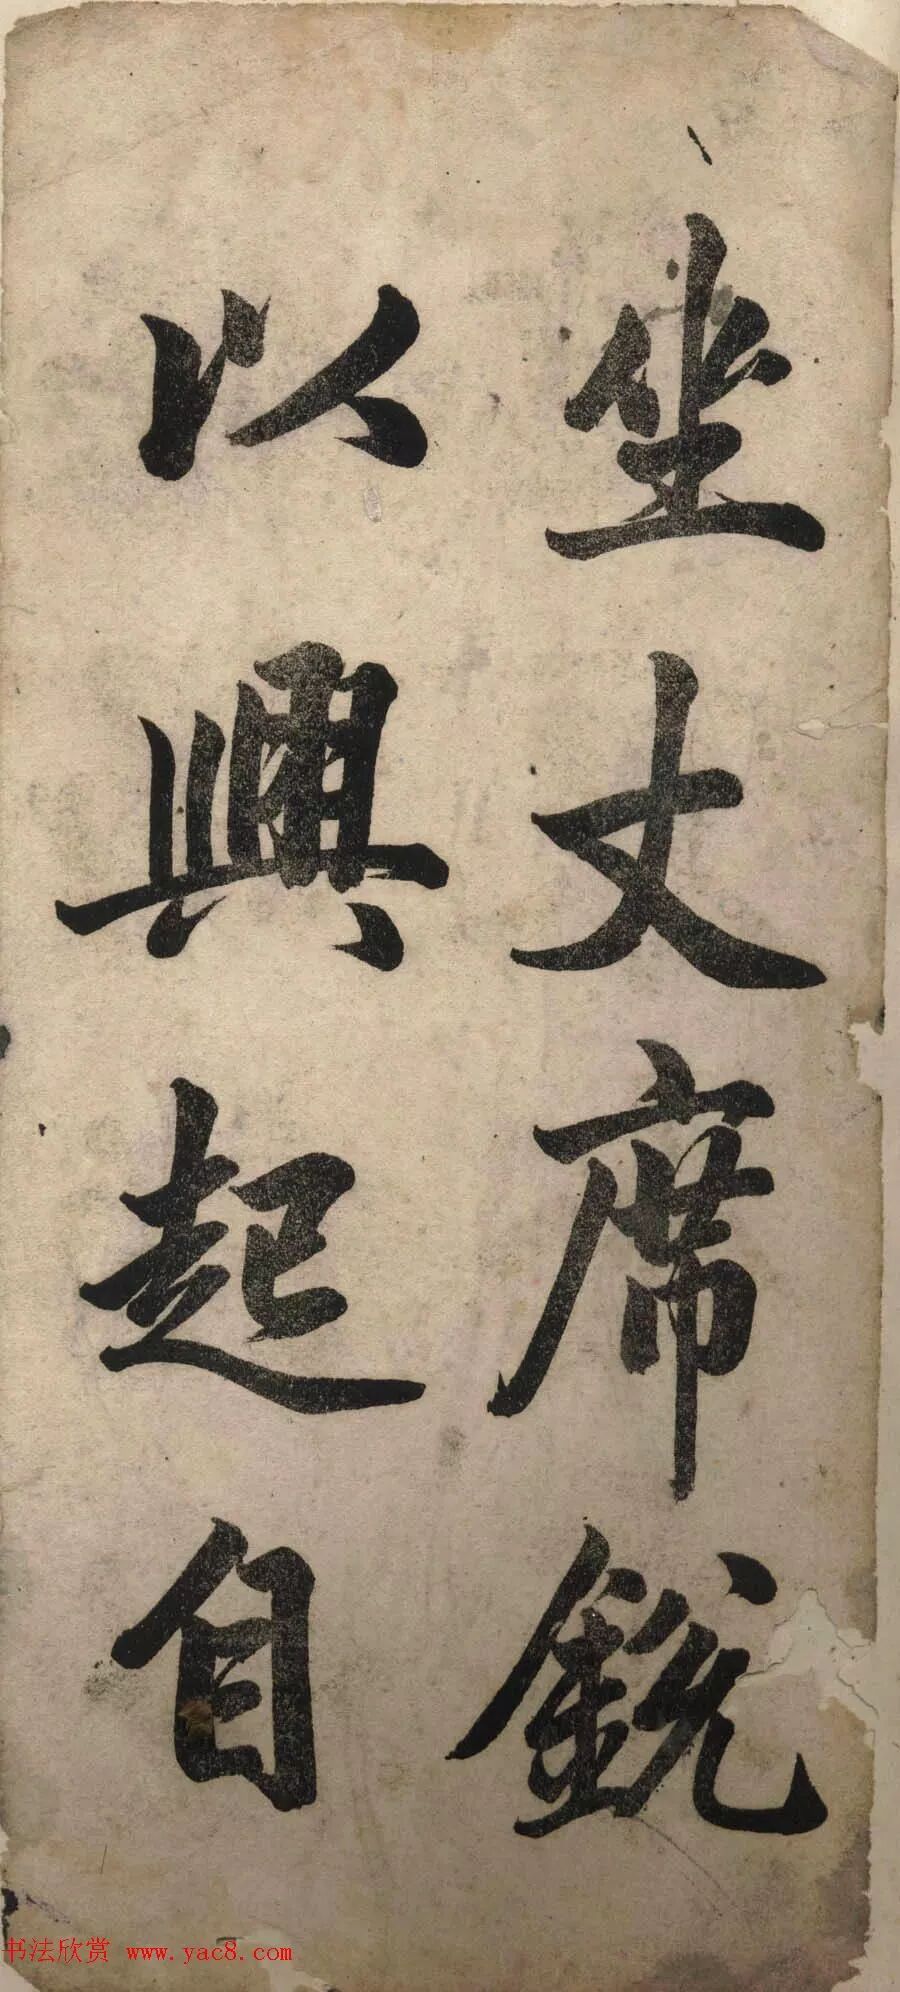 坐丈席銳
以興起自
书法欣赏 www.yac8.com